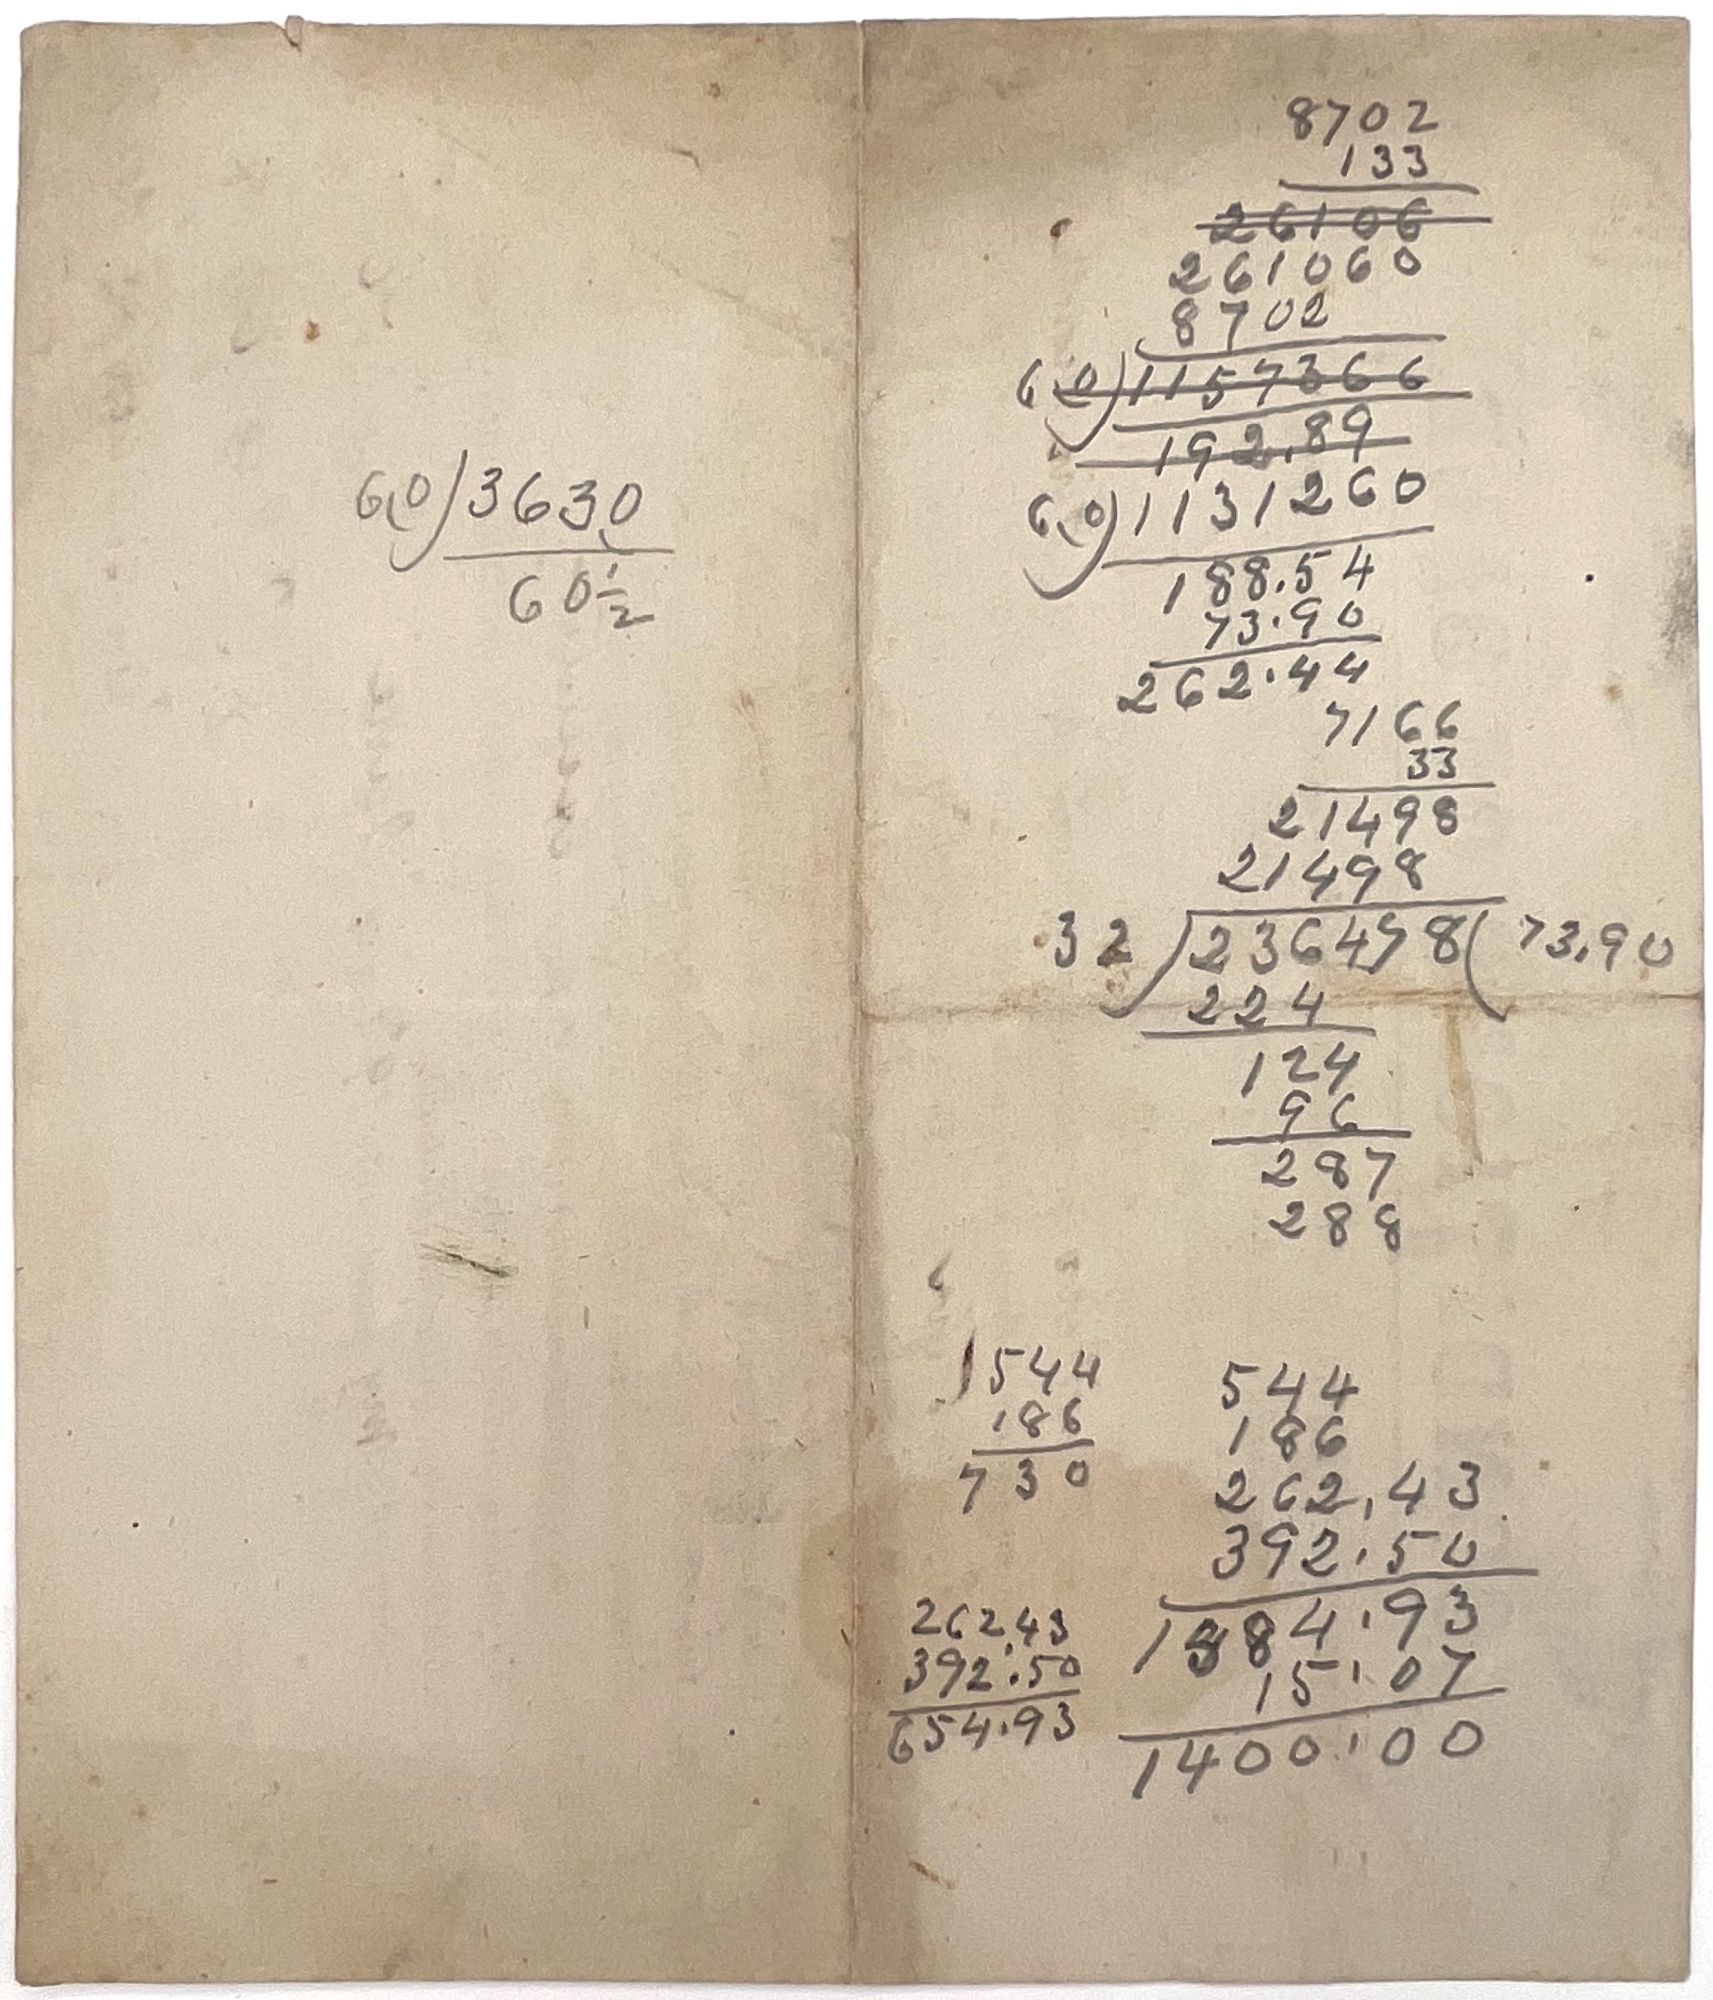 6,0)3630
60 1/2
8702
133
26106
261060
8702
6,0)1157366
192.89
6,0)1131260
188.54
73.90
262.44
7166
33
21498
21498
32)236478(73.90
224
124
96
287
288
1544
186
730
544
186
262.43
392.50
1384.93
15.07
1400.00
262.43
392.50
654.93